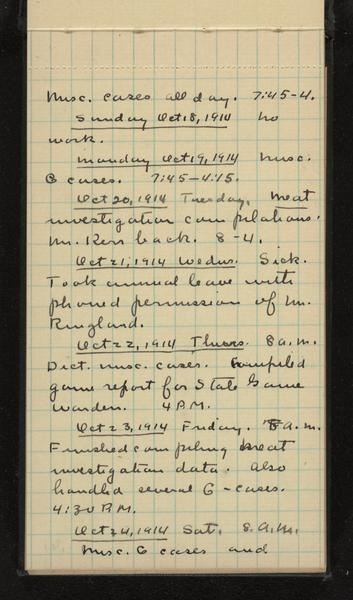 Misc. cases all day. 7:45-4.
Sunday Oct 18, 1914 no
work.
Monday Oct 19, 1914 misc.
G cases. 7:45-4:15.
Oct 20, 1914 Tuesday, Meat
investigation compilations.
Mr. Kerr back. 8-4.
Oct 21, 1914 Wednes. Sick.
Took annual leave with
phoned permission of Mr.
Ringland.
Oct 22, 1914 Thurs. 8 a.m.
Dict. misc. cases. Compiled
game report for State Game
Warden. 4 P.M.
Oct 23, 1914 Friday. 8 a.m.
Finished compiling meat
investigation data. Also
handled several G-cases.
4:30 P.M.
Oct 24, 1914 Sat. 8 A.M.
Misc. G cases and